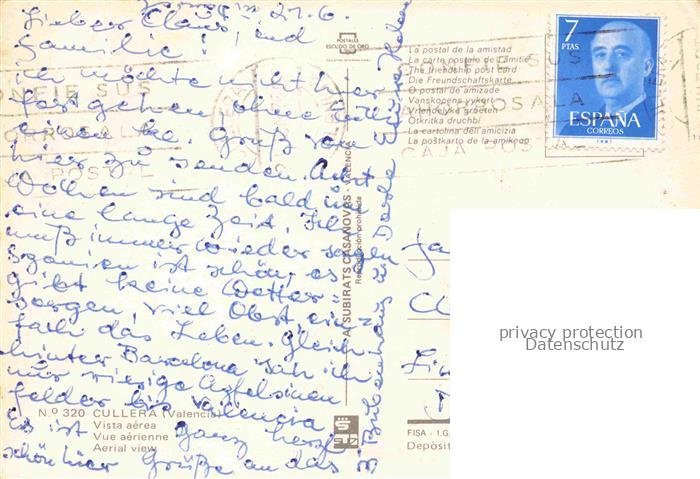 27.6.
Lieber Claus und
Familie!
ich möchte nicht hier
fortgehen, ohne
einen Gruß von
hier zu senden. Acht
Wochen sind bald um
eine lange Zeit. Ich
muß immer wieder sagen
Spanien ist schön, es
gibt keine Wetter=
sorgen, viel Obst, ein=
fach das Leben. Gleich
hinter Barcelona sah ich
nur riesige Apfelsinen
felder bis Valencia
Es ist ganz herzl.
schön hier Grüße an das
POSTALES
ESCUDO DE ORO
La postal de la amistad
La carte postale de l'amitié
The friendship post card
Die Freundschaftskarte
O postal de amizade
Vanskopens vykort
Vriendelyke groeten
Otkritka druchbi
La cartolina dell'amicizia
La postkarto de la amikeco
7
PTAS
ESPAÑA
CORREOS
CAJA POSTAL
SUBIRATS CASANOVAS - VALENCIA
Reproducción prohibida
N.º 320 CULLERA (Valencia)
Vista aérea
Vue aérienne
Aerial view
FISA - I.G.
Depósit
privacy protection
Datenschutz